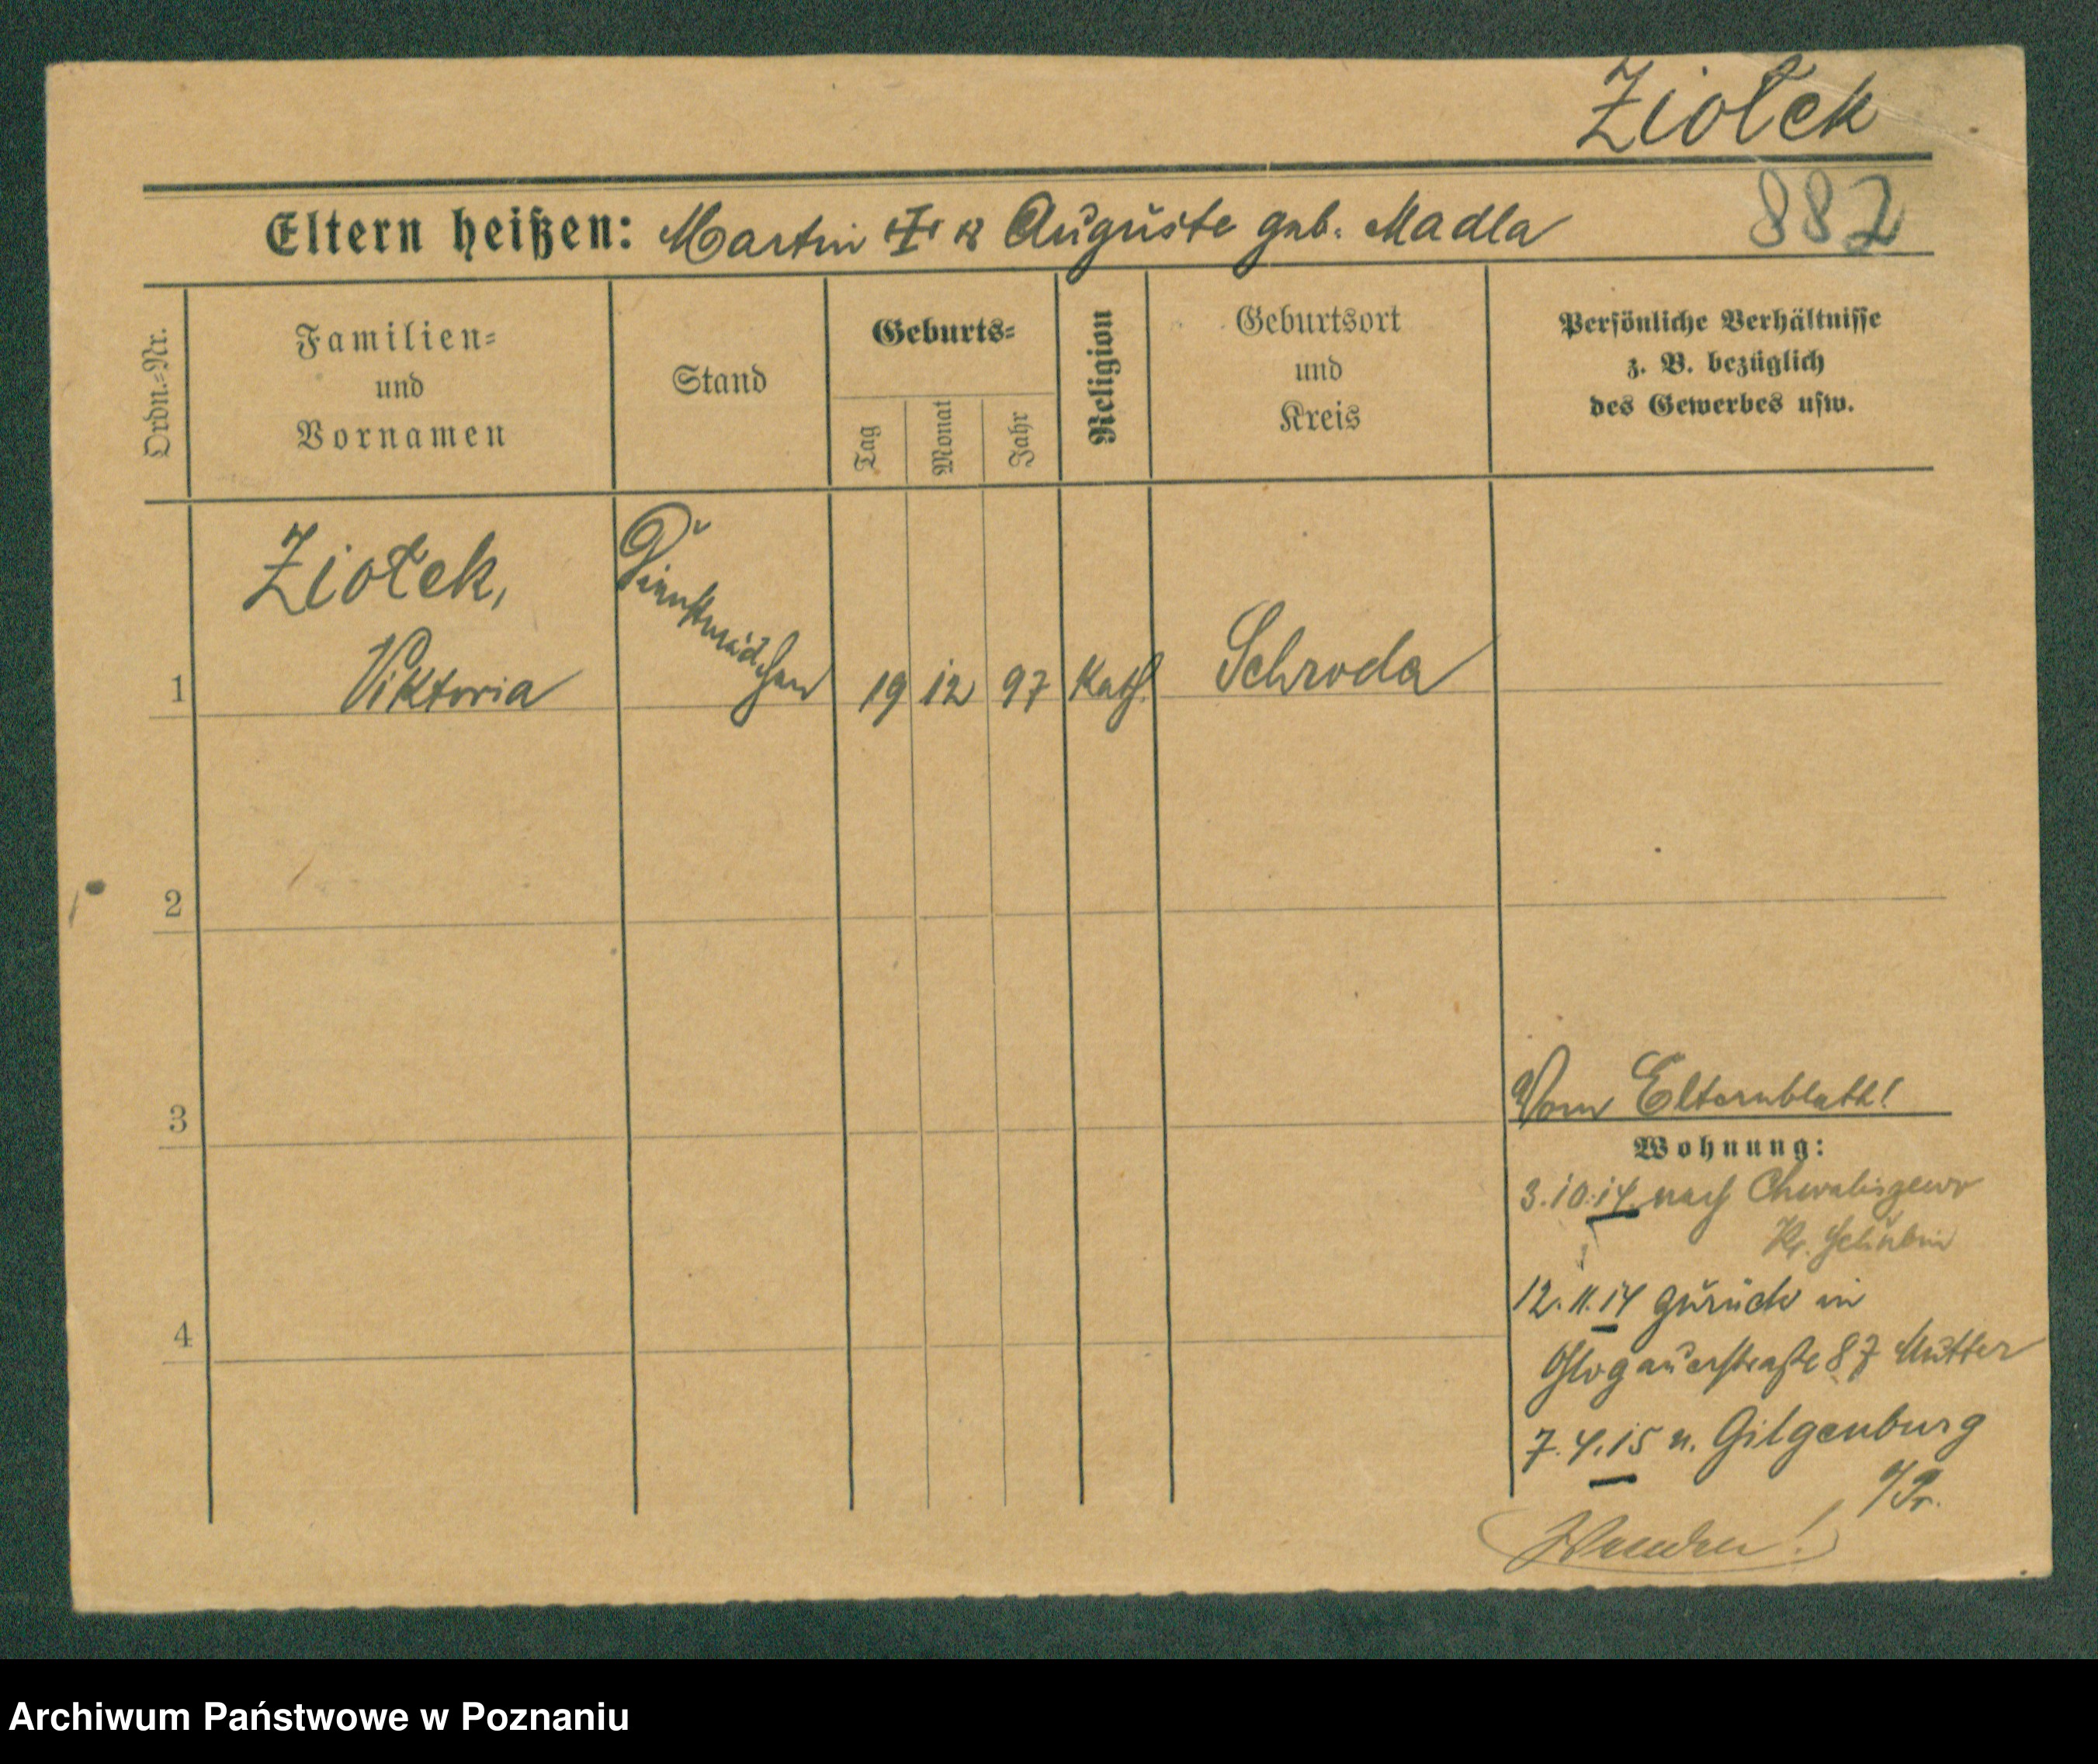 Ziołek
882
Eltern heißen: Martin ‡ u Auguste geb. Madla
Ordn.=Nr.
Familien=
und
Vornamen
Stand
Geburts=
Tag
Monat
Jahr
Religion
Geburtsort
und
Kreis
Persönliche Verhältnisse
z. B. bezüglich
des Gewerbes usw.
1
Ziołek,
Viktoria
Dienstmädchen
19 12 97
Kath.
Schroda
2
3
4
Vom Elternblatt!
Wohnung:
3.10.14. nach
Kr. Schubin
12.11.14 zurück in
Glogauerstraße 87 Mutter
7.4.15 n. Gilgenburg
O/Pr.
Archiwum Państwowe w Poznaniu